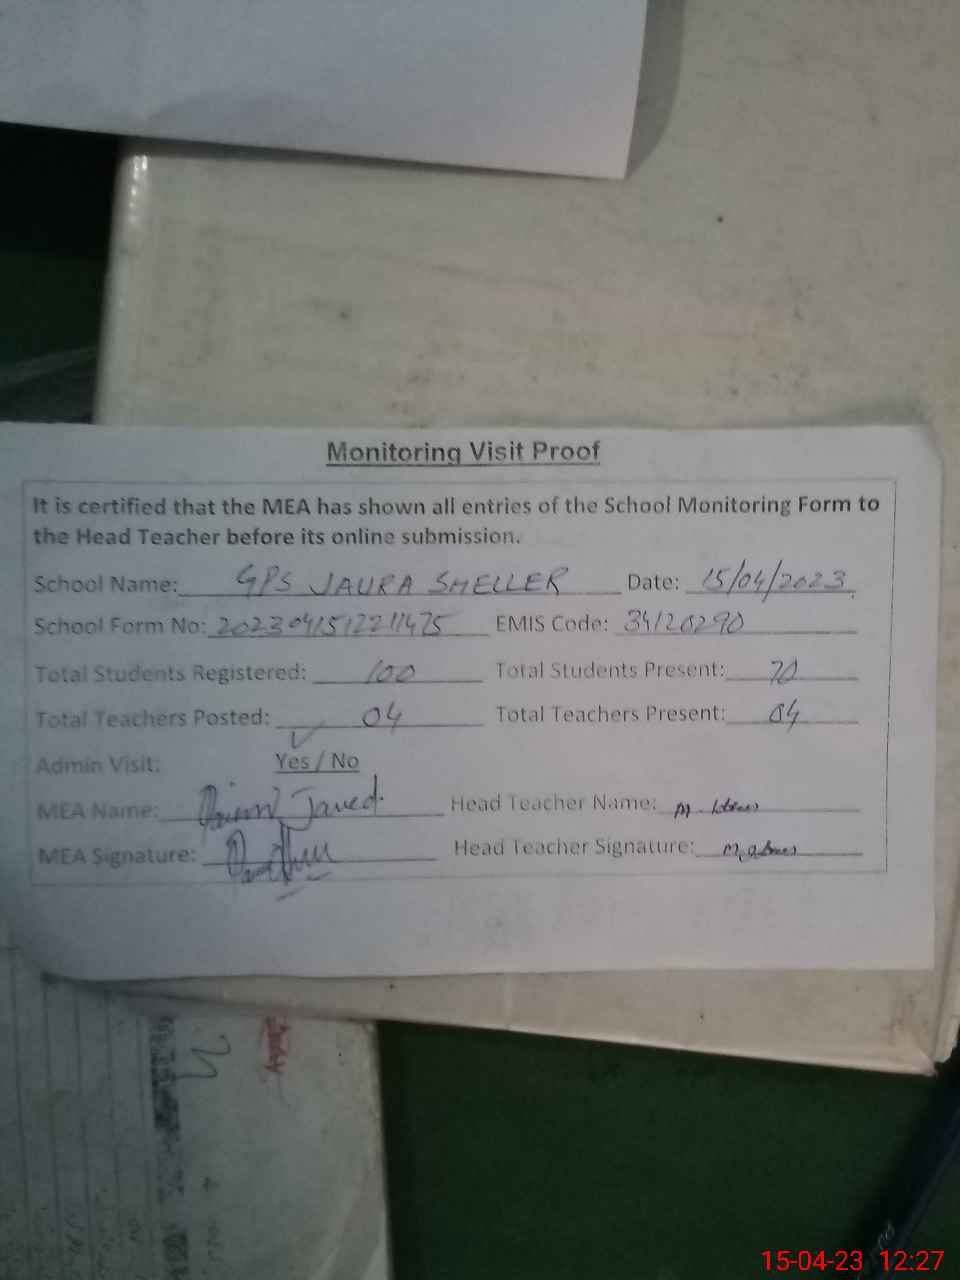 Monitoring Visit Proof
It is certified that the MEA has shown all entries of the School Monitoring Form to
the Head Teacher before its online submission.
School Name: GPS JAURA SHELLER Date: 15/04/2023
School Form No: 2023041512211475 EMIS Code: 34120290
Total Students Registered: 100 Total Students Present: 70
Total Teachers Posted: 04 Total Teachers Present: 04
Admin Visit: Yes / No
MEA Name: Javed Head Teacher Name: M.
MEA Signature: Head Teacher Signature: M.
15-04-23 12:27